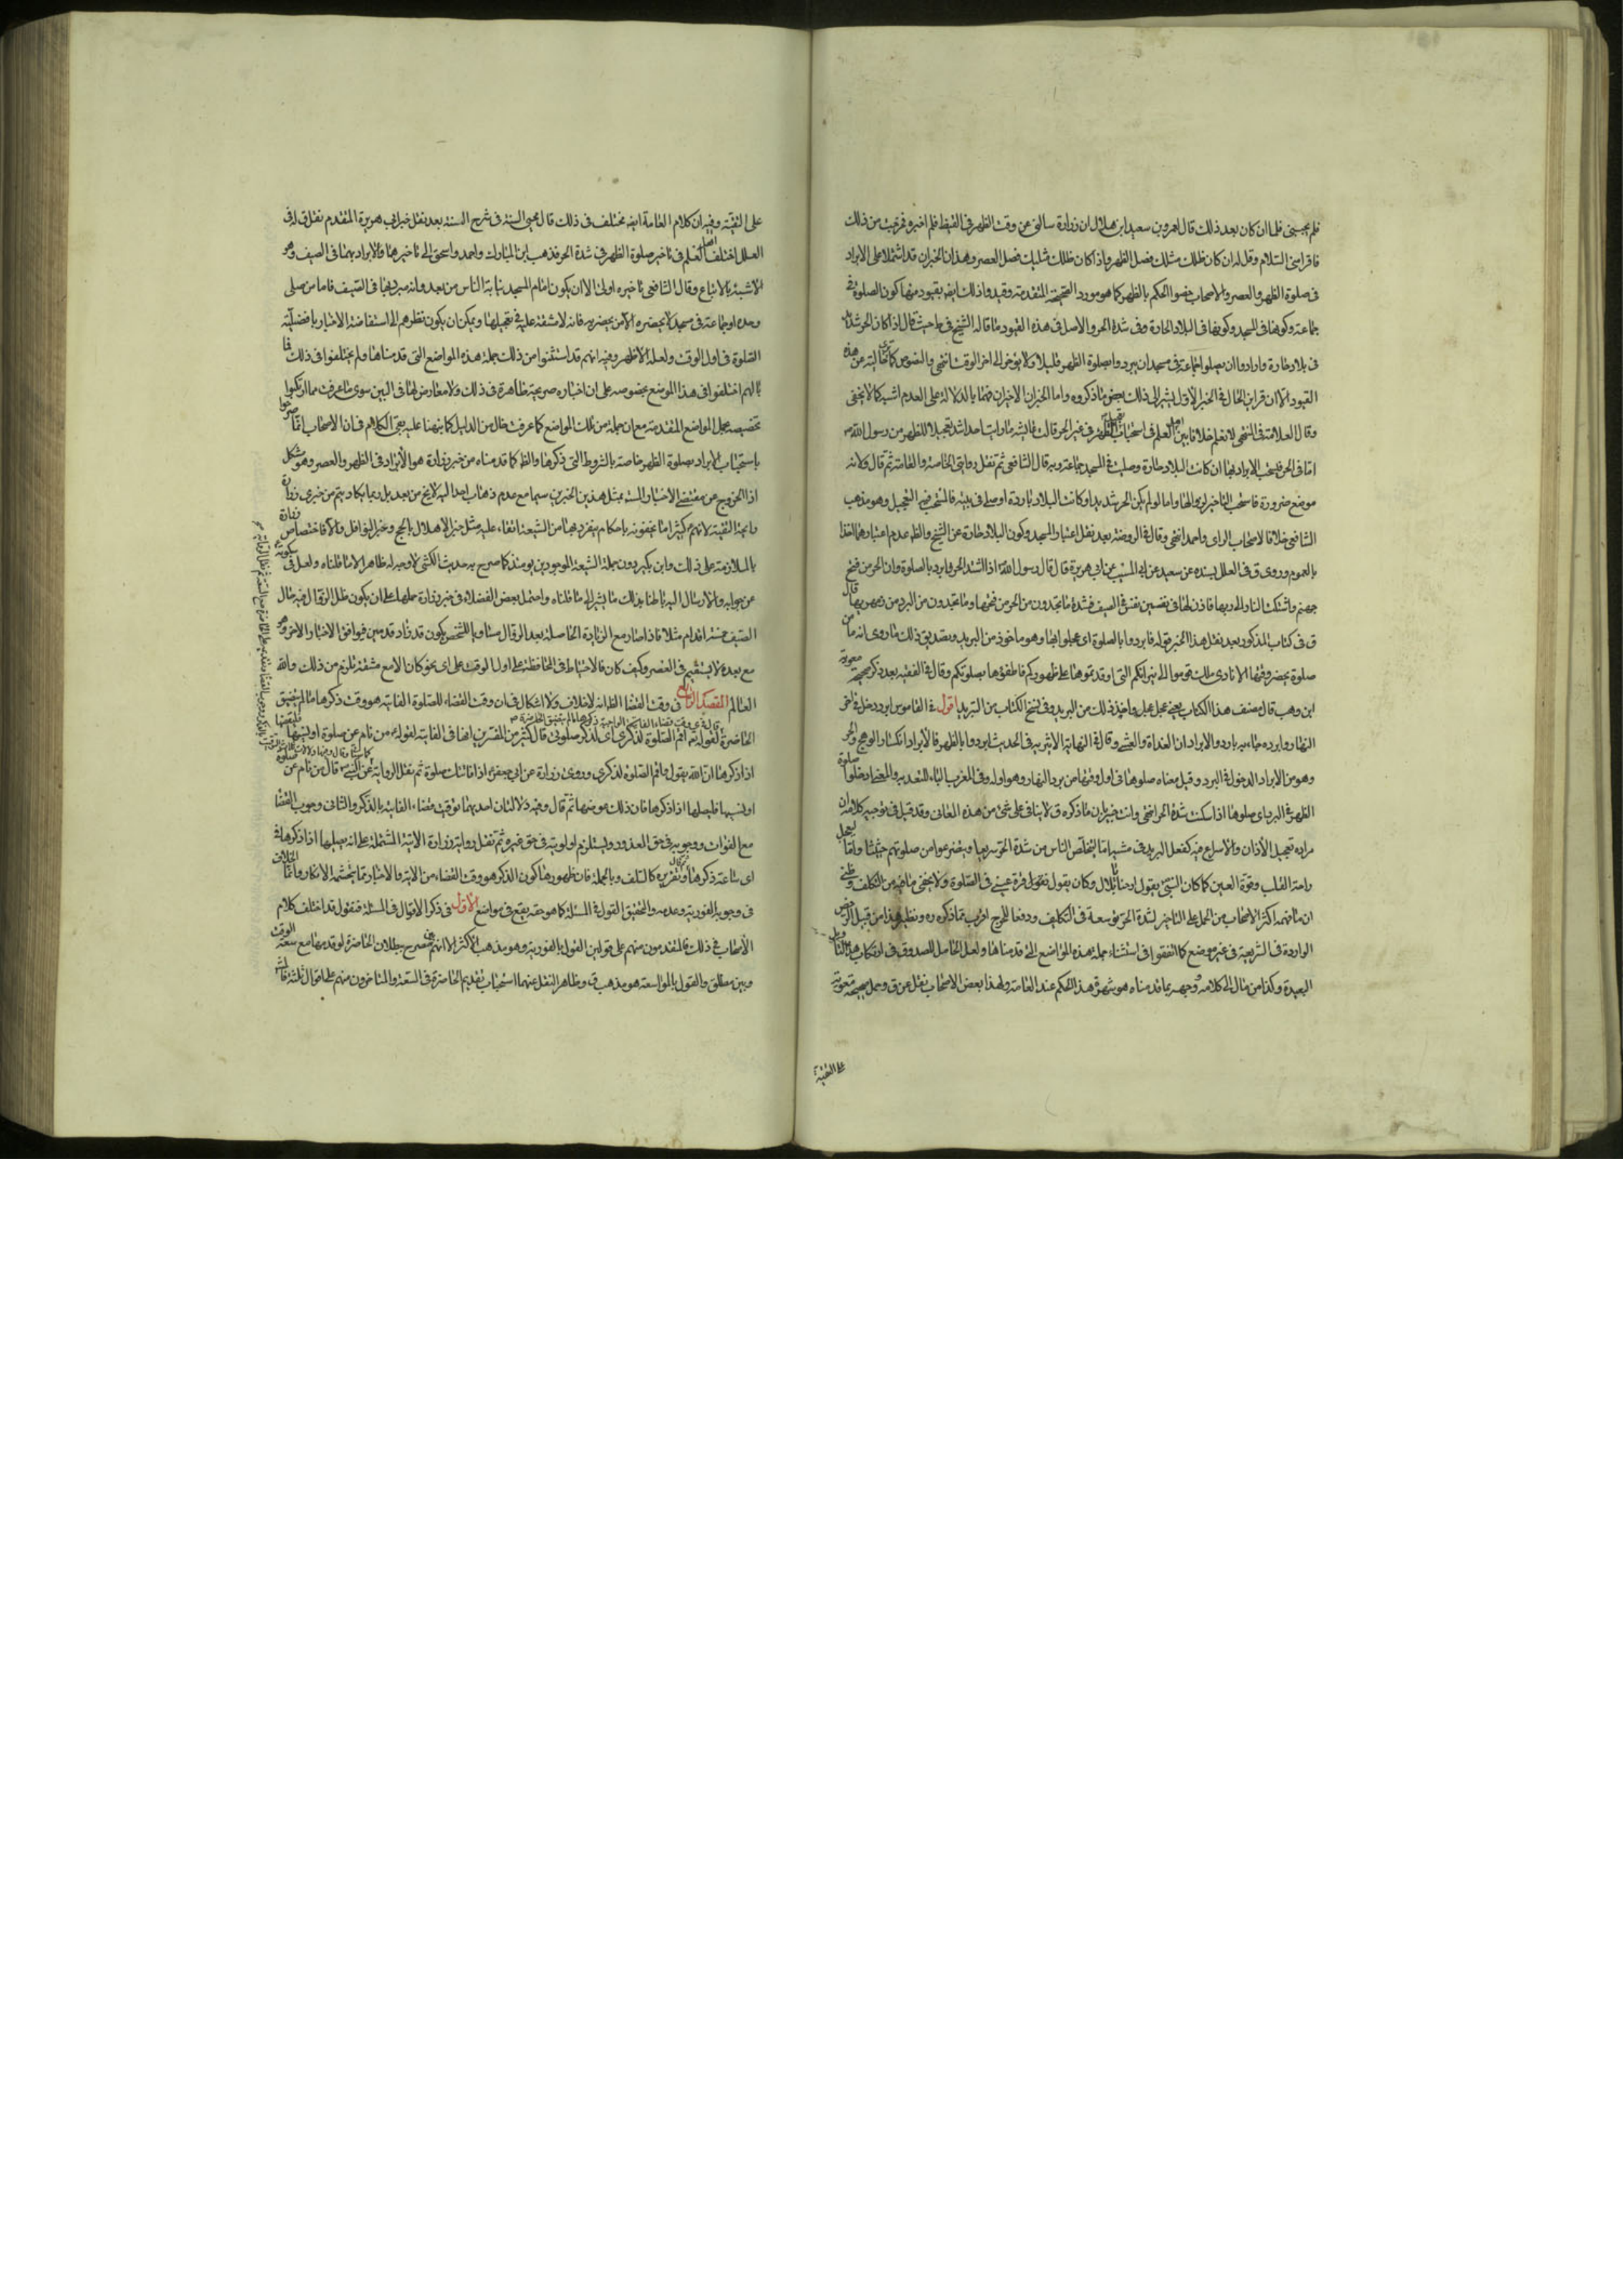 فلم يجبني فلما ان كان بعد ذلك قال لعمرو بن سعيد ابن هلال ان زرارة سالني عن وقت الظهر في القيظ فلم اخبره فخرجت من ذلك
فاقرأه مني السلام وقل له ان كان ظلك مثلك فصل الظهر واذا كان ظلك مثليك فصل العصر وهذان الخبران قد اشتملا على الابراد
في صلوة الظهر والعصر والاصحاب خصوا الحكم بالظهر كما هو مورد الصحيحة المتقدمة وقيدوا ذلك ايضا بقيود منها كون الصلوة في
جماعة وكونها في المسجد وكونها في البلاد الحارة وفي شدة الحر والاصل في هذه القيود ما قاله الشيخ في ط حيث قال اذا كان الحر شديدا
في بلاد حارة وارادوا ان يصلوا جماعة في مسجد ان يبردوا بصلوة الظهر قليلا ولا يؤخر الى اخر الوقت انتهى والنصوص كما ترى خالية عن هذه
القيود الا ان قراين الحال في الخبر الاول يشير الى ذلك بعض ما ذكروه واما الخبران الاخيران فهما بالدلالة على العدم اشبه كما لا يخفى
وقال العلامة في المنتهى لا نعلم خلافا بين اهل العلم في استحباب تعجيل الظهر في غير الحر قالت عايشة ما رايت احدا اشد تعجيلا للظهر من رسول الله ص
اما في الحر فيستحب الابراد بها ان كانت البلاد حارة وصليت في المسجد جماعة وبه قال الشافعي ثم نقل روايتي الخاصة والعامة ثم قال ولانه
موضع ضرورة فاستحب التاخير لزوالها واما لو لم يكن الحر شديدا وكانت البلاد باردة او صلى في بيته فالمستحب فيه التعجيل وهو مذهب
الشافعي خلافا لاصحاب الراي واحمد انتهى وقال في الروضة بعد نقل اعتبار المسجد وكون البلاد حارة عن الشيخ والظ عدم اعتبارهما اخذا
بالعموم وروى ق في العلل بسنده عن سعيد عن ابي المسيب عن ابي هريرة قال قال رسول الله ص اذا اشتد الحر فابردوا بالصلوة وان الحر من فيح
جهنم واشتكت النار الى ربها فاذن لها في نفسين نفس في الصيف فشدة ما تجدون من الحر من فيحها وما تجدون من البرد من زمهريرها قال
ق في كتاب المذكور بعد نقل هذا الخبر قوله فابردوا بالصلوة اى عجلوا بها وهو ماخوذ من البريد وتصديق ذلك ما روى انه ما من
صلوة يحضر وقتها الا نادى ملك قوموا الى نيرانكم التي اوقدتموها على ظهوركم فاطفؤها بصلوتكم وقال في الفقيه بعد ذكر صحيحة معوية
ابن وهب قال مصنف هذا الكتاب يعني عجل عجل واخذ ذلك من البريد وفي نسخ الكتاب من التبريد اقول في القاموس ابرد دخل في اخر
النهار وابرده جاء به باردا والابردان الغداة والعشي وقال في النهاية الاثيرية في الحديث ابردوا بالظهر فالابراد انكسار الوهج والحر
وهو من الابراد الدخول في البرد وقيل معناه صلوها في اول وقتها من برد النهار وهو اوله وفي المغرب الباء للتعدية والمعنى ادخلوا صلوة
الظهر في البرد اى صلوها اذا سكنت شدة الحر انتهى وانت خبير بان ما ذكره ق لا ينافي على شئ من هذه المعاني وقد قيل في توجيه كلامه ان
مراده تعجيل الاذان والاسراع فيه كفعل البريد في مشيه اما ليتخلص الناس من شدة الحر سريعا ويفرغوا من صلوتهم حثيثا واما لتعجل
راحة القلب وقرة العين كما كان النبي ص يقول ارحنا يا بلال وكان يقول قرة عيني في الصلوة ولا يخفى ما فيه من التكلف وظني
ان ما فهمه اكثر الاصحاب من الحمل على التاخير لشدة الحر توسعة في التكليف ودفعا للحرج اقرب مما ذكره ره ونظير هذا من قبيل الرخص
الواردة في الشريعة في غير موضع كما اتفقوا في استثناء جملة هذه المواضع التي قدمناها ولعل الحامل للصدوق في ارتكاب هذا التاويل
البعيد وكذا من مال الى كلامه ووجهه بما قدمناه هو شهرة هذا الحكم عند العامة ولهذا بعض الاصحاب نقل عن ق وحمل صحيحة معوية
على التقية
على التقية وفيه ان كلام العامة ايضا مختلف في ذلك قال محيي السنة في شرح السنة بعد نقل خبر ابي هريرة المتقدم نقله في
العلل اختلف اهل العلم في تاخير صلوة الظهر في شدة الحر فذهب ابن المبارك واحمد واسحق الى تاخيرها والابراد بها في الصيف وهو
الاشبه بالاتباع وقال الشافعي تاخيره اولى الا ان يكون امام المسجد ينتابه الناس من بعد فانه يبرد بها في الصيف فاما من صلى
وحده او جماعة في مسجد لا يحضره الا من بحضرته فانه لا مشقة عليه في تعجيلها ويمكن ان يكون نظرهم الى استفاضة الاخبار بافضلية
الصلوة في اول الوقت ولعله الاظهر وفيه انهم قد استثنوا من ذلك جملة هذه المواضع التي قدمناها ولم يختلفوا في ذلك فما
بالهم اختلفوا في هذا الموضع بخصوصه على ان اخباره صريحة ظاهرة في ذلك ولا معارض لها في البين سوى ما عرفت مما ارتكبوا
تخصيصه بجل المواضع المتقدمة مع ان جملة من تلك المواضع كما عرفت خال من الدليل كما نبهنا عليه بقي الكلام في ان الاصحاب انما صرحوا
باستحباب الابراد بصلوة الظهر خاصة بالشروط التي ذكرها والظ كما قدمناه من خبر زرارة هو الابراد في الظهر والعصر وهو مشكل
اذ الخروج عن مقتضى الاخبار المستفيضة بمثل هذين الخبرين سيما مع عدم ذهاب احد اليه لا يخ من بعد بل ربما يكاد يشم من خبري زرارة
رايحة التقية لانهم ع كثيرا ما يتحفونه باحكام ينفرد بها من الشيعة اتقاء عليه مثل خبر الاهلال بالحج وخبر النوافل والا فاختصاص زرارة
بالملازمة على ذلك وابن بكير دون جملة الشيعة الموجودين يومئذ كما صرح به حديث الكشي لا وجه له ظاهرا الا ما قلناه ولعل في سكوته ع
عن جوابه والارسال اليه باطنا بذلك ما يشير الى ما قلناه واحتمل بعض الفضلاء في خبر زرارة حملها على ان يكون ظل الزوال فيه حال
الصيف خمسة اقدام مثلا فاذا صار مع الزيادة الحاصلة بعد الزوال مساويا للشخص يكون قد زاد قدمين فيوافق الاخبار الاخر وهو
مع بعده لا يستقيم في العصر وكيف كان فالاحتياط في المحافظة على اول الوقت على اى نحو كان الا مع مشقة تلزم من ذلك والله
العالم المقصد الرابع في وقت القضا الظ انه لا خلاف ولا اشكال في ان وقت القضاء للصلوة الفايتة هو وقت ذكرها ما لم يتضيق
الحاضرة لقوله تعالى اقم الصلوة لذكري اى لذكر صلوتي قال كثير من المفسرين انها في الفايتة لقوله ع من نام عن صلوة او نسيها فليقضها
اذا ذكرها ان الله يقول واقم الصلوة لذكري وروى زرارة عن ابي جعفر ع اذا فاتتك صلوة ثم نقل الرواية عن النبي ص قال من نام عن صلوة
او نسيها فليصلها اذا ذكرها فان ذلك هو وقتها ثم قال وفيه دلالتان احديهما توقيت قضاء الفايتة بالذكر والثاني وجوب القضا
مع الفوات ووجوبه في حق المعذور ويستلزم اولويته في حق غيره ثم نقل رواية زرارة الاتية المشتملة على انه يصليها اذا ذكرها في
اى ساعة ذكرها وتقريره كالسلف وبالجملة فان ظهورها كون الذكر هو وقت القضاء من الاية والاخبار مما يتجشمه الانكار وانما الخلاف
في وجوبه الفورية وعدمه والتحقيق القول في المسئلة كما هو حقه يقع في مواضع الاول في ذكر الاقوال في المسئلة فنقول قد اختلف كلام
الاصحاب في ذلك فالمتقدمون منهم على قولين القول بالفورية وهو مذهب الاكثر الا انهم بين مصرح ببطلان الحاضرة لو قدمها مع سعة الوقت
وبين مطلق والقول بالمواسعة هو مذهب ق وظاهر النقل عنهما استحباب تقديم الحاضرة في السعة والمتاخرون منهم على اقوال ثلثة